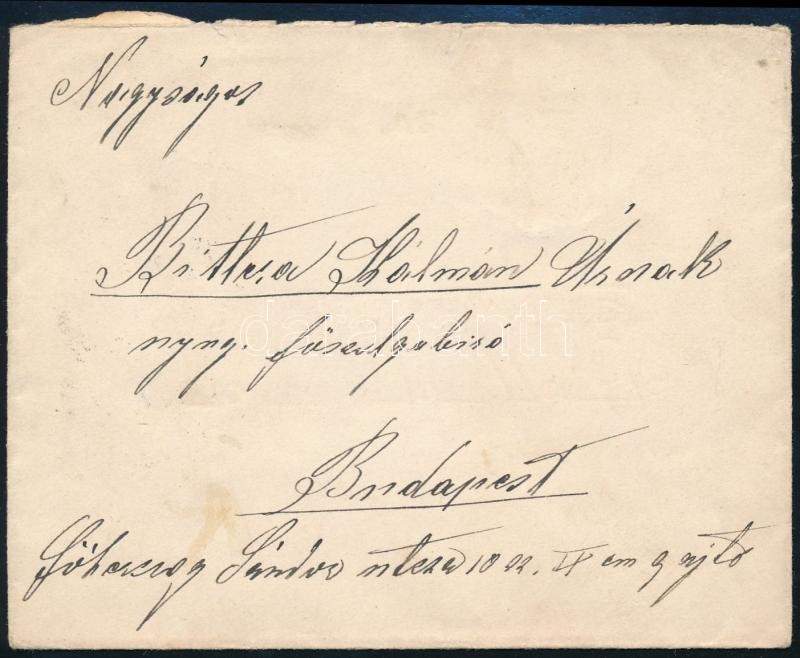 Nagyságos
Bittera Kálmán Úrnak
nyug. főszolgabíró
darabanth
Budapest
Főherczeg Sándor utcza 10 sz. em 9 ajtó